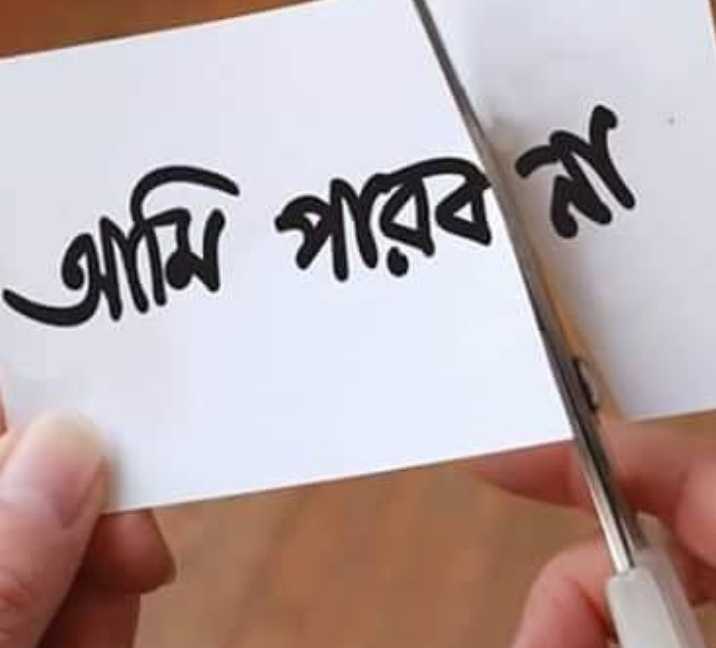 আমি পারব না